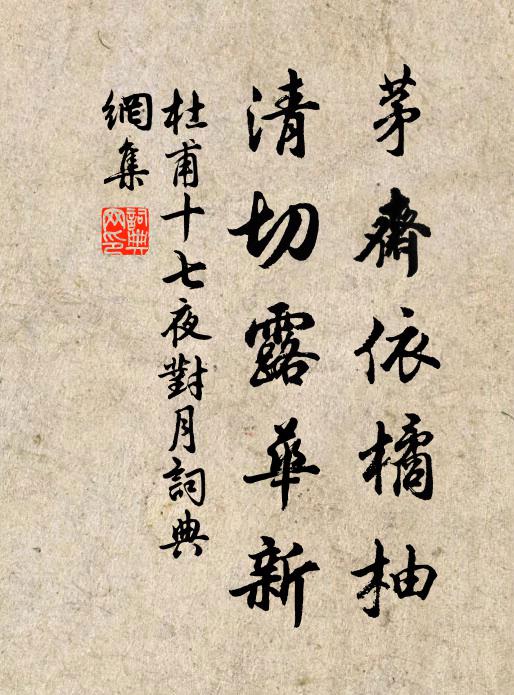 茅齋依橘柚
清切露華新
杜甫十七夜對月詞典
網集
詞典網印